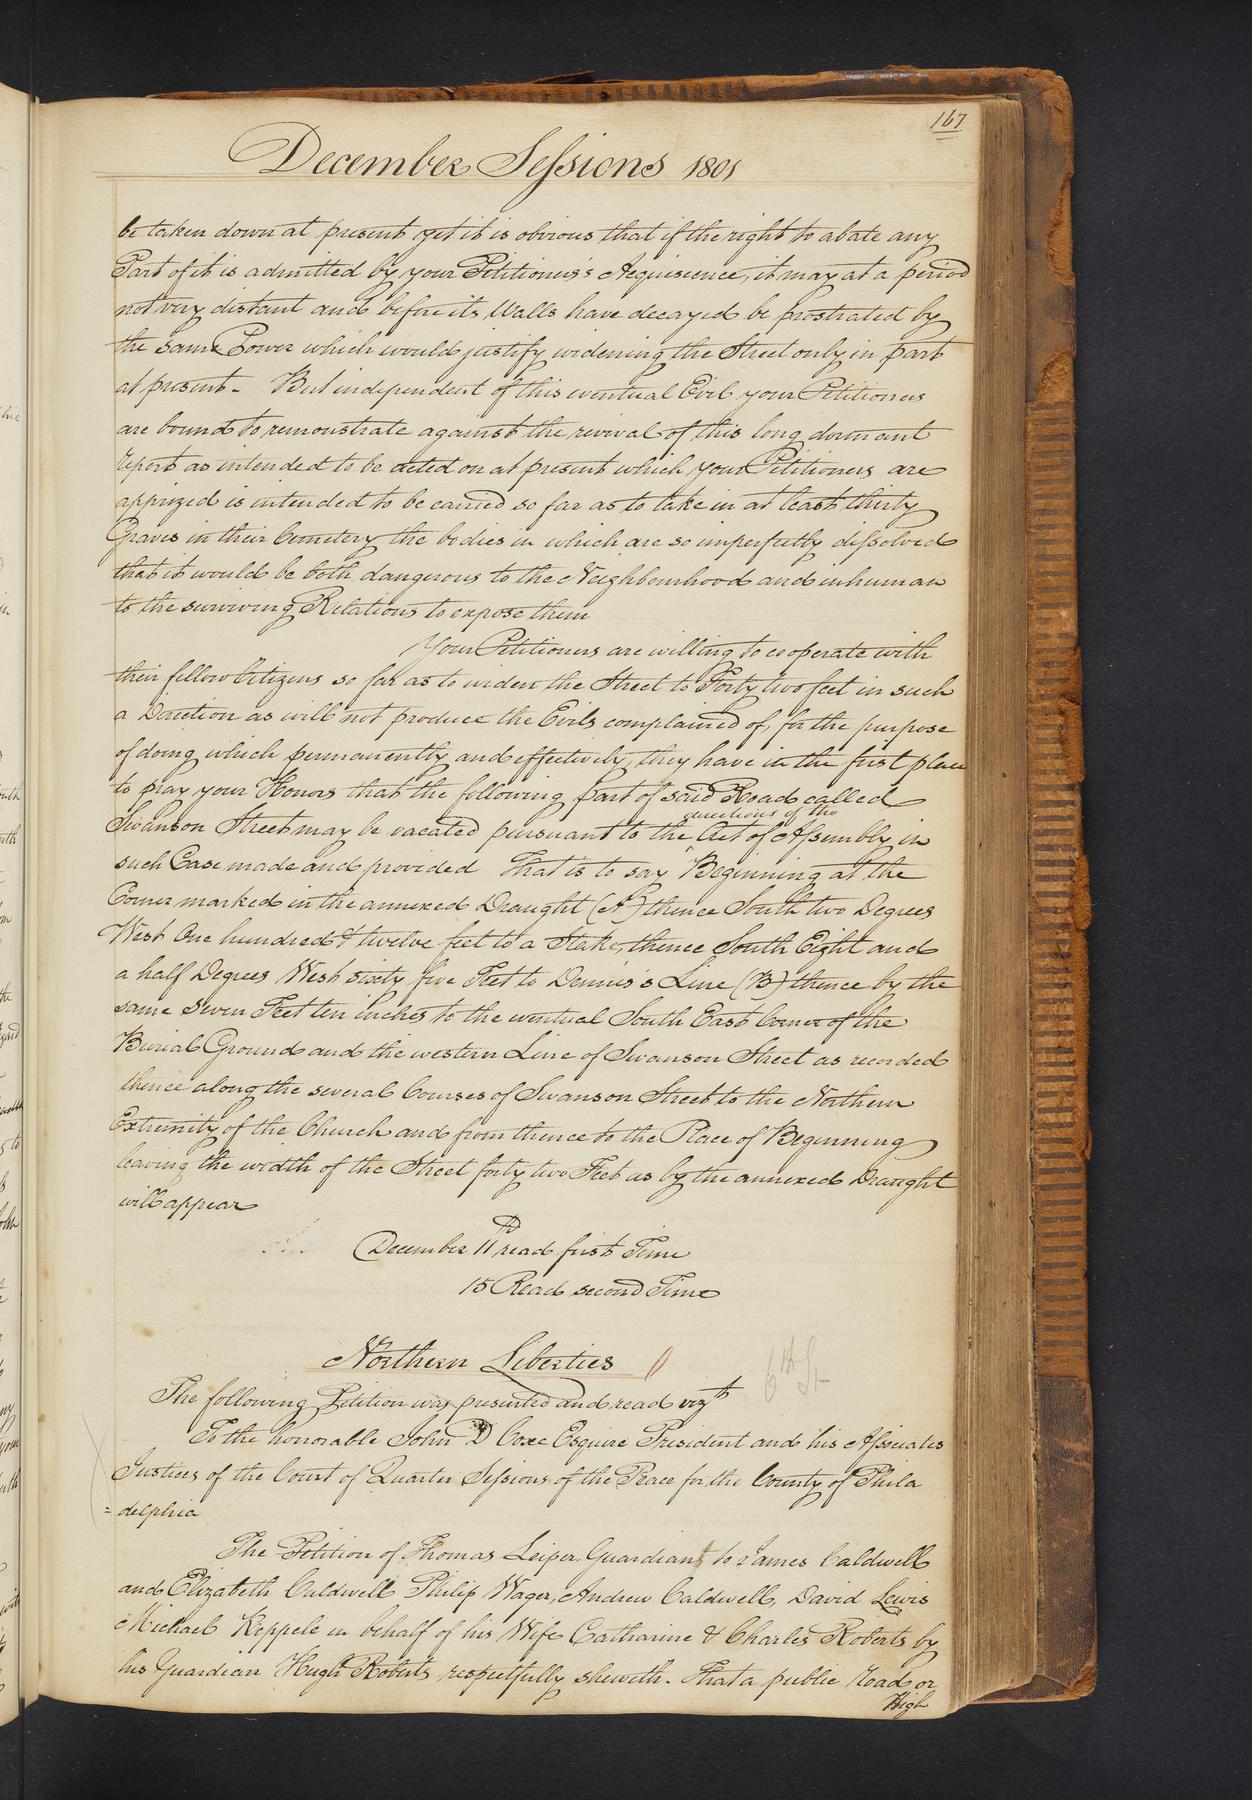 167
December Sessions 1801
be taken down at present yet it is obvious that if the right to abate any
Part of it is admitted by your Petitioners's Acquiscence, it may at a period
not very distant and before its Walls have decayed be prostrated by
the same Power which would justify widening the Street only in part
at present - But independent of this eventual Evil your Petitioners
are bound to remonstrate against the revival of this long dormant
report as intended to be acted on at present which your Petitioners are
apprized is intended to be carried so far as to take in at least thirty
Graves in their Cemetery the bodies in which are so imperfectly dissolved
that it would be both dangerous to the Neighbourhood and inhuman
to the surviving Relations to expose them
Your Petitioners are willing to cooperate with
their fellow Citizens so far as to widen the Street to Forty two feet in such
a Direction as will not produce the Evils complained of, for the purpose
of doing which permanently and effectively, they have in the first place
to pray your Honors that the following part of said Road called
directions of the
Swanson Street may be vacated pursuant to the Act of Assembly in
such Case made and provided That is to say Beginning at the
Corner marked in the annexed Draught (A) thence South two Degrees
West One hundred & twelve feet to a Stake, thence South Eight and
a half Degrees West sixty five Feet to Dennis's Line (B) thence by the
same seven Feet ten inches to the eventual South East Corner of the
Burial Ground and the western Line of Swanson Street as recorded
thence along the several Courses of Swanson Street to the Northern
Extremity of the Church and from thence to the Place of Beginning
leaving the width of the Street forty two Feet as by the annexed Draught
will appear
December 11th read first Time
15 Read second Time
Northern Liberties
6th St
The following Petition was presented and read vizt
To the honorable John D Coxe Esquire President and his Associates
Justices of the Court of Quarter Sessions of the Peace for the County of Phila
=delphia
The Petition of Thomas Leiper Guardian to James Caldwell
and Elizabeth Caldwell Philip Wager, Andrew Caldwell, David Lewis
Michael Keppele in behalf of his Wife Catharine & Charles Roberts by
his Guardian Hugh Roberts respectfully sheweth. That a public road or
High